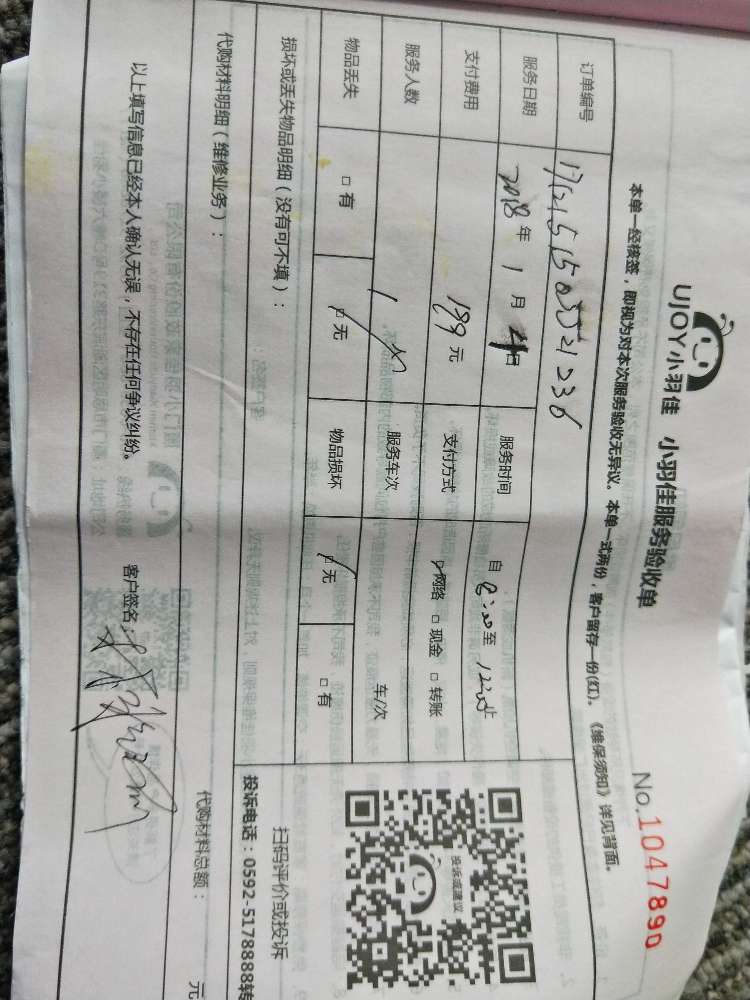 UJOY小羽佳 小羽佳服务验收单
No.1047890
本单一经核签，即视为对本次服务验收无异议。本单一式两份，客户留存一份(红)。《维保须知》详见背面。
订单编号
服务日期 2018年1月 日 服务时间 自8:00至12:00止
支付费用 199元 支付方式 网络 □ 现金 □ 转账
服务人数 1 服务车次 车/次
物品丢失 □ 有 □ 无 物品损坏 □ 无 □ 有
损坏或丢失物品明细（没有可不填）：
投诉或建议
扫码评价或投诉
投诉电话：0592-5178888转
代购材料明细（维修业务）：
代购材料总额： 元
以上填写信息已经本人确认无误，不存在任何争议纠纷。 客户签名：